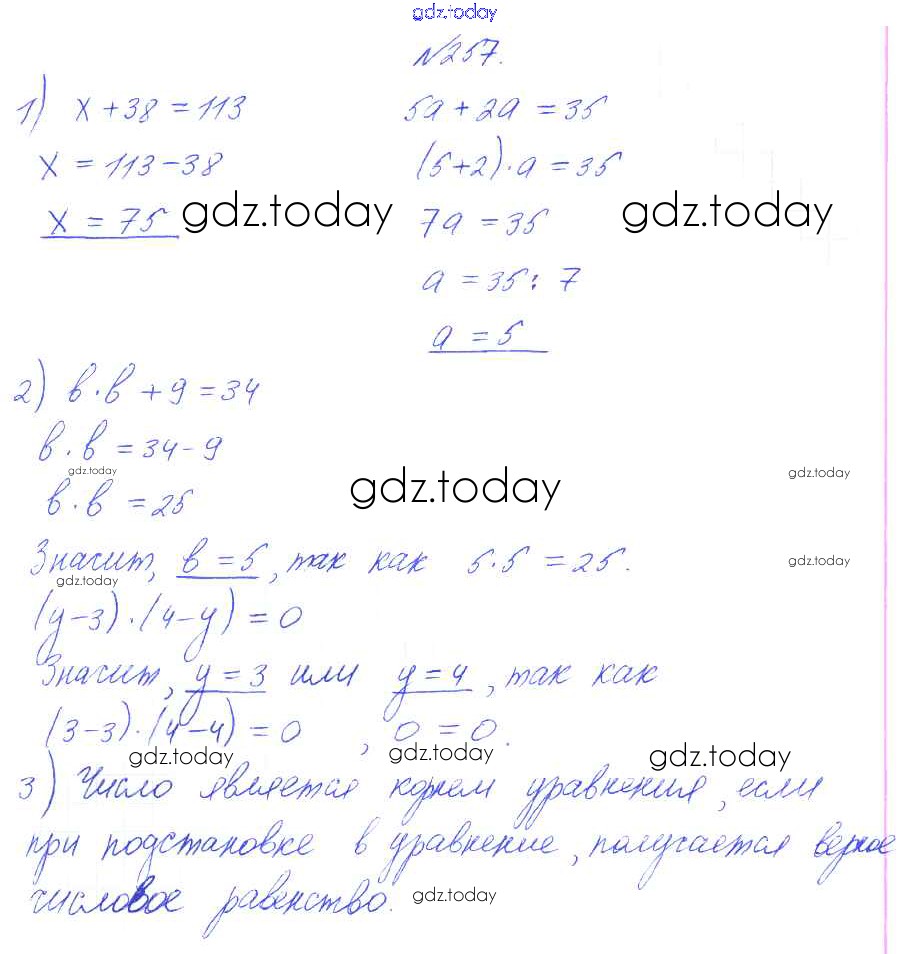 gdz.today
№257.
1) x + 38 = 113
x = 113 - 38
x = 75
gdz.today
5a + 2a = 35
(5+2)·a = 35
7a = 35
gdz.today
a = 35 : 7
a = 5
2) в·в + 9 = 34
в·в = 34 - 9
gdz.today
gdz.today
gdz.today
в·в = 25
Значит, в = 5, так как 5·5 = 25.
gdz.today
gdz.today
(y-3)·(4-y) = 0
Значит, y = 3 или y = 4, так как
(3-3)·(4-4) = 0, 0 = 0.
gdz.today gdz.today gdz.today
3) Число является корнем уравнения, если
при подстановке в уравнение, получается верное
числовое равенство.
gdz.today